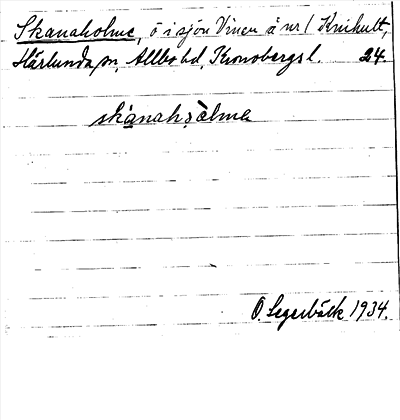 Skanaholme, ö i sjön Vinen å nr 1 Knihult,
Härlunda sn, Allbo hd, Kronobergs l. 24.
skánahòlma
O. Segerbäck 1934.